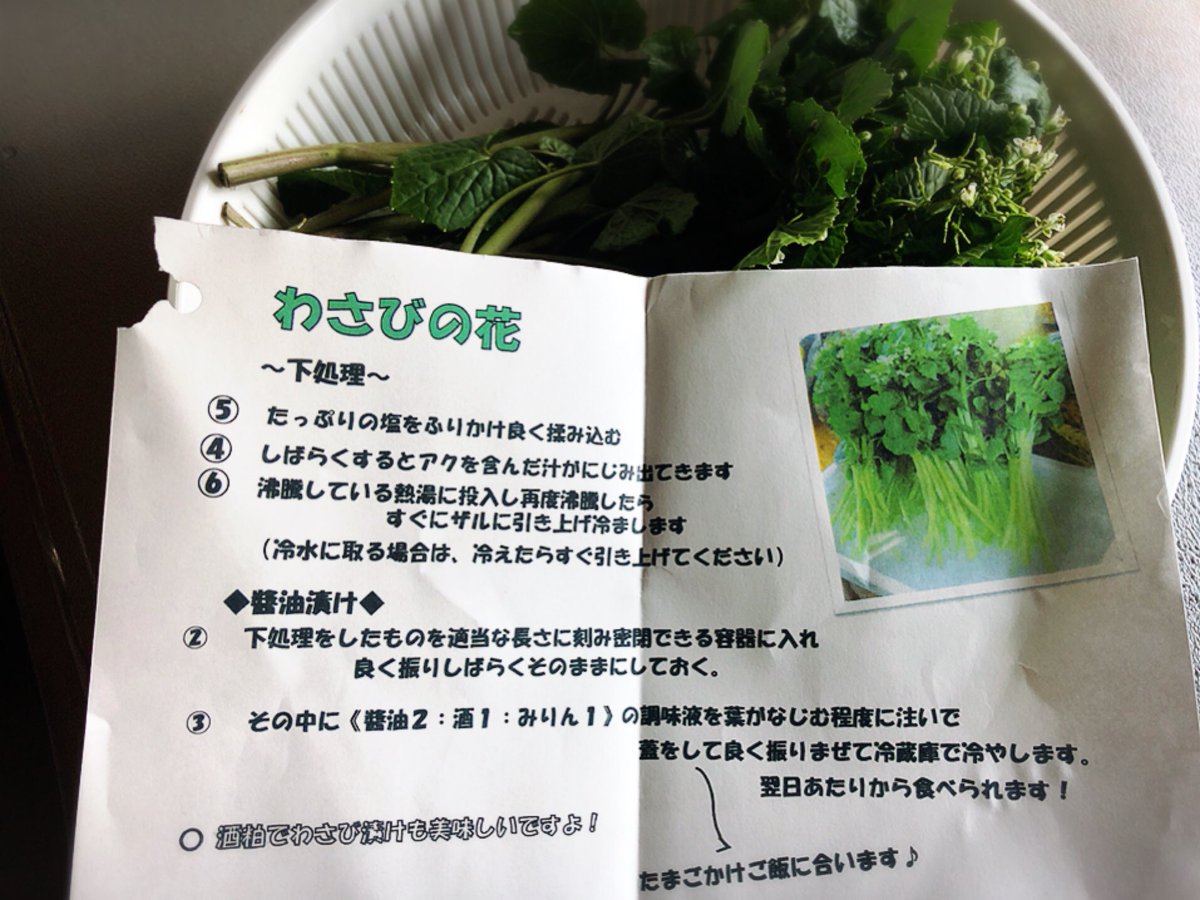 わさびの花
～下処理～
⑤ たっぷりの塩をふりかけ良く揉み込む
④ しばらくするとアクを含んだ汁がにじみ出てきます
⑥ 沸騰している熱湯に投入し再度沸騰したら
すぐにザルに引き上げ冷まします
（冷水に取る場合は、冷えたらすぐ引き上げてください）
◆醬油漬け◆
② 下処理をしたものを適当な長さに刻み密閉できる容器に入れ
良く振りしばらくそのままにしておく。
③ その中に《醬油２：酒１：みりん１》の調味液を葉がなじむ程度に注いで
蓋をして良く振りまぜて冷蔵庫で冷やします。
翌日あたりから食べられます！
○ 酒粕でわさび漬けも美味しいですよ！
たまごかけご飯に合います♪